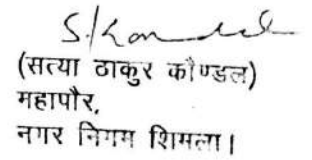 S/Kondel
(सत्या ठाकुर कौण्डल)
महापौर,
नगर निगम शिमला।